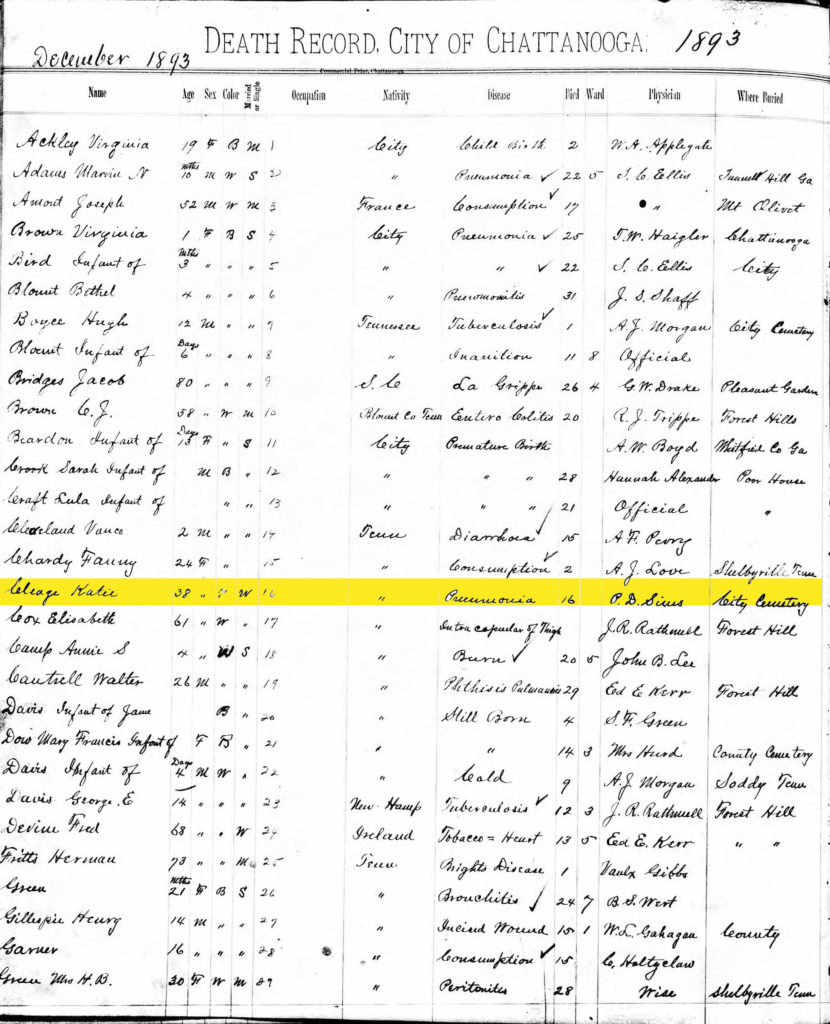 December 1893 DEATH RECORD, CITY OF CHATTANOOGA. 1893
Commercial Print, Chattanooga
Name Age Sex Color Married or Single Occupation Nativity Disease Died Ward Physician Where Buried
Ackley Virginia 19 F B M 1 City Child Birth 2 W.A. Applegate
Adams Marvin N Mths 10 M W S 2 " Pneumonia ✓ 22 5 S. C. Ellis Tunnell Hill Ga
Amont Joseph 52 M W M 3 France Consumption ✓ 17 " Mt Olivet
Brown Virginia 1 F B S 4 City Pneumonia ✓ 25 T.W. Haigler Chattanooga
Bird Infant of Mths 3 " " " 5 " " ✓ 22 S. C. Ellis City
Blount Bethel 4 " " " 6 " Pneumonitis 31 J. S. Shaff
Boyce Hugh 12 M " " 7 Tennessee Tuberculosis ✓ 1 A.J. Morgan City Cemetery
Blount Infant of Days 6 " " " 8 " Inanition 11 8 Official
Bridges Jacob 80 " " " 9 S. C La Grippe 26 4 G.W. Drake Pleasant Garden
Brown C. J. 58 " W M 10 Blount Co Tenn Entero Colitis 20 R. J. Trippe Forest Hills
Beardon Infant of Days 13 F " S 11 City Premature Birth A.W. Boyd Whitfied Co Ga
Crook Sarah Infant of M B " 12 " " " 28 Hannah Alexander Poor House
Craft Lula Infant of " " 13 " " " 21 Official "
Cleveland Vance 2 M " " 14 Tenn Diarrhoea ✓ 15 A F. Perry
Chardy Fanny 24 F " 15 " Consumption ✓ 2 A. J. Love Shelbyville Tenn
Cleage Katie 38 " " W 16 " Pneumonia 16 P. D. Sims City Cemetery
Cox Elisabeth 61 " W " 17 " Intra capsular of Thigh J.R. Rathmell Forest Hill
Camp Annie S 4 " W S 18 " Burn ✓ 20 5 John B. Lee
Cantrell Walter 26 M " " 19 " Phthisis Pulmanaris 29 Ed E. Kerr Forest Hill
Davis Infant of Jane B " 20 " Still Born 4 S. F. Green
Dow Mary Francis Infant of F B " 21 " " 14 3 Mrs Hurd County Cemetery
Davis Infant of Days 4 M W " 22 " Cold 9 A.J. Morgan Soddy Tenn
Davis George. E 14 " " " 23 New Hamp Tuberculosis ✓ 12 3 J. R. Rathmell Forest Hill
Devine Fred 68 " " W 24 Ireland Tobacco = Heart 13 5 Ed E. Kerr " "
Fritts Herman 73 " " M 25 Tenn Brights Disease 1 Vaulx Gibbs
Green Mths 21 F B S 26 " Bronchitis ✓ 24 7 B. S. West
Gillespie Henry 14 M " " 27 " Incised Wound 15 1 W. L. Gahagan County
Garner 16 " " " 28 " Consumption ✓ 15 C. Holtzclaw
Green Mrs H.B. 30 F W M 29 " Peritonites 28 Wise Shelbyville Tenn